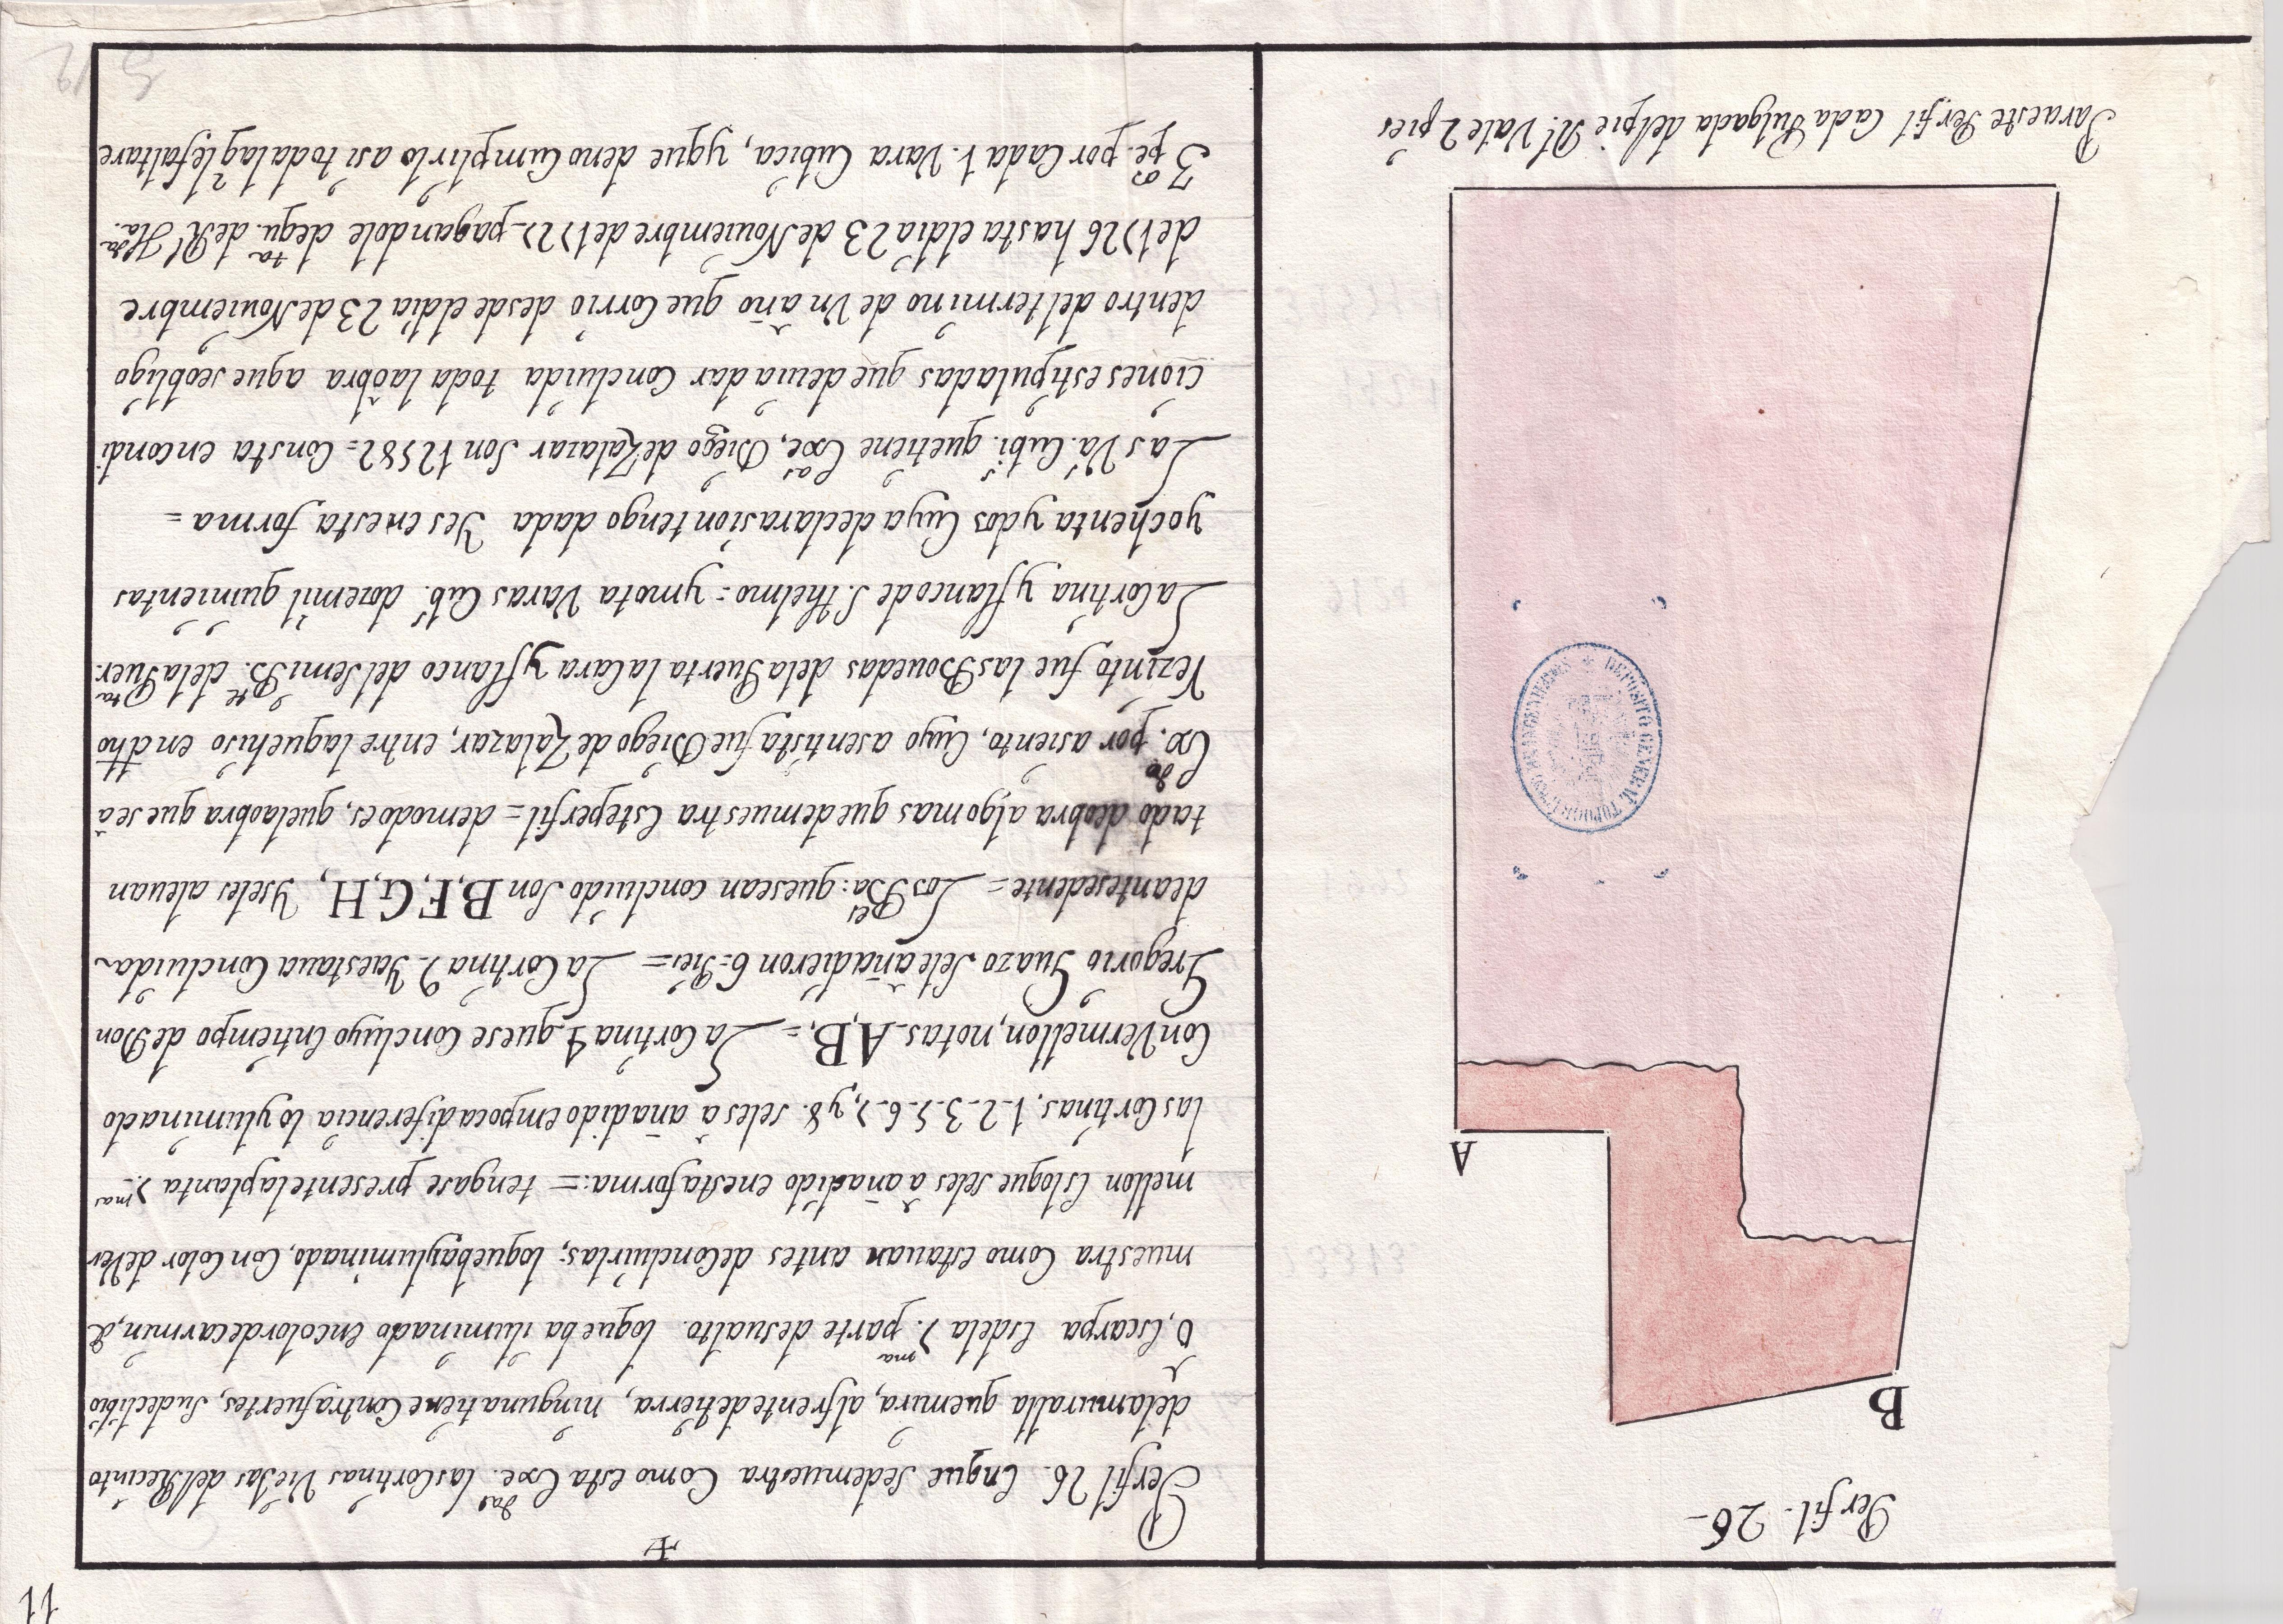 11
Perfil. 26
B
A
DEPOSITO GENERAL TOPOGRAFICO DE INGENIEROS
Para este Perfil Cada Pulgada del pie Rl. Vale 2 pies
Perfil 26. Enque Sedemuestra Como esta Exe.das lasCortinas VieJas delRecinto
delamuralla quemira, alfrentedetierra, ningunatieneContrafuertes, Sudeclibio
O, Escarpa Esdela 7.ma parte desualto. loqueba iluminado encolordecarmin, d
muestra Como estauan antes deConcluirlas; loquebayluminado, Con Color deVer
mellon Esloque seles a añadido enestaforma:= tengase presentelaplanta 7.ma
lasCortinas, 1_2_3_5_6_7, y 8. seles à añadido Empocadiferencia lo yluminado
ConVermellon, notas_A,B,= LaCortina 4 quese Concluyo Entiempo deDon
Gregorio Guazo Sele añadieron 6=Pies= LaCortina 9 YaestauaConcluida
deantesedente= LosBa:es quesean concluido Son B,F,G,H, Yseles aleuan
tado deobra algomas quedemuestra Esteperfil= demodoes, quelaobra que seà
Ex.do por asiento, Cuyo asentista fueDiego deZalazar, entre laquehiso en dho
Rezinto fue lasBouedas delaPuerta laCara y flanco delSemiB. Pte delaPuer.ta
LaCortina yflancode S.Thelmo= ymota Varas Cub.s dozemil quinientas
yochenta ydos Cuya declarasion tengo dada Yes enesta forma =
Las Va.s Cubi.s quetiene Exe.as Diego deZalazar Son 12582= Consta encondi
ciones estipuladas que deuia dar Concluida toda laòbra aque seobligo
dentro deltermino de Vn año que Corrio desde eldia 23 deNouiembre
de1726 hasta eldia 23 deNouiembre de1727_pagandole dequ.ta deRl Ha.da
3 pe.os por Cada 1. Vara Cubica, yque deno Cumplirlo asi todalaq lefaltare